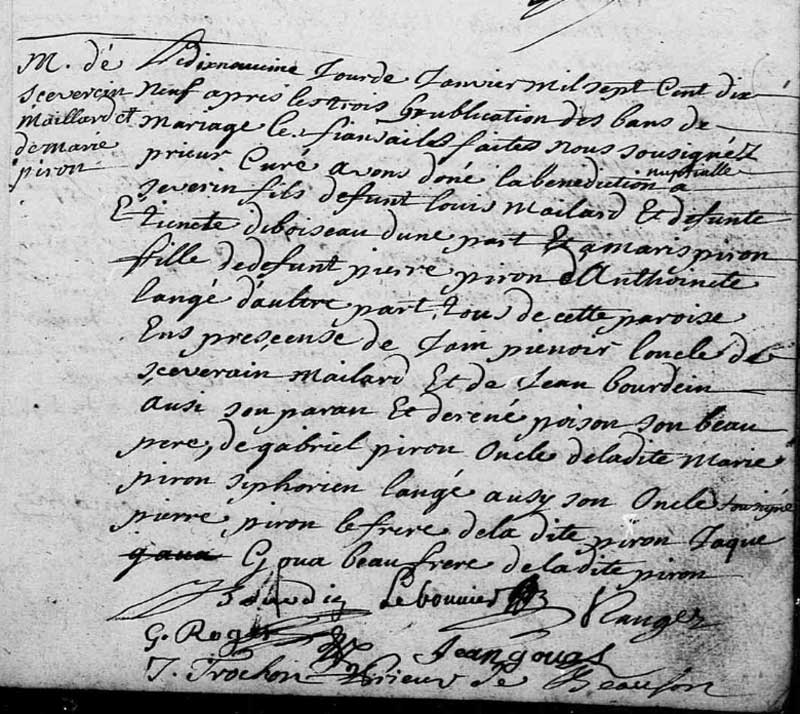 M. dé
sceverein
Maillard et
de marie
piron
Le dixnauvime Jour de Janvier mil sept Cent dix
neuf apres les trois publication des bans de
mariage les fiansailes faites nous sousignéz
prieur Curé avons doné la benediction nuptialle a
severin fils defunt louis Mailard Et defunte
Etienete diboiseau dune part Et a maris piron
fille dedefunt pierre piron d'Anthoinete
langé d'autre part, tous de cette paroise
Ens prescense de Jam pienoir loncle de
sceverain mailard Et de Jean bourdein
ausi son paran Et de rené poison son beau
pere, de gabriel piron Oncle deladite Marie
piron siphorien langé ausy son Oncle sousigné
pierre piron le frere dela dite piron Jaque
Goua beaufrere de ladite piron
Lebouvier Rangez
G. Roger Jean gouas
J. Trochon Prieur de Beauson